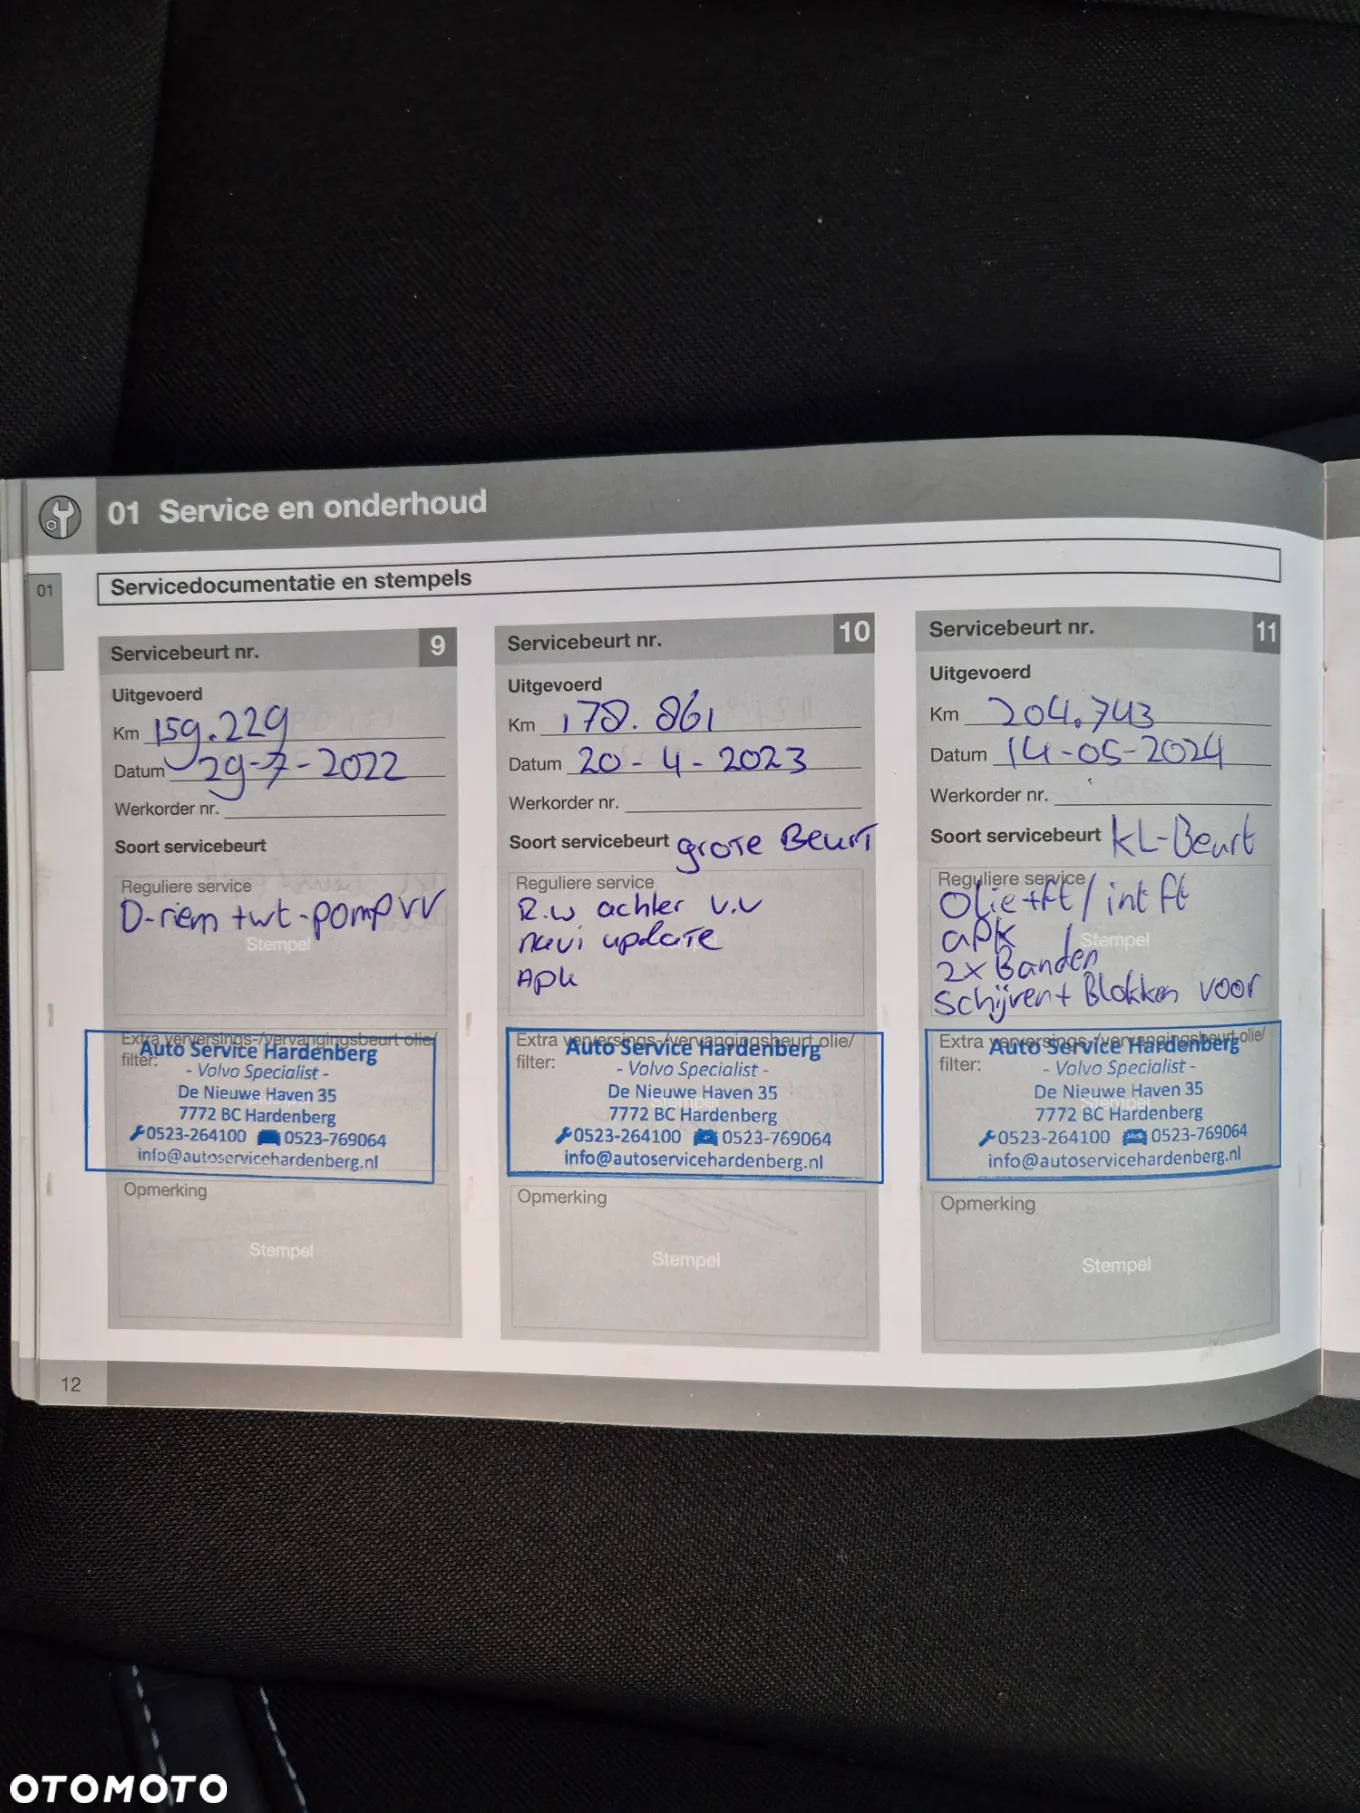 01 Service en onderhoud
01
Servicedocumentatie en stempels
Servicebeurt nr. 9
Uitgevoerd
Km 159.229
Datum 29-7-2022
Werkorder nr.
Soort servicebeurt
Reguliere service
D-riem + wt-pomp VV
Stempel
Extra verversings-/vervangingsbeurt olie/
filter:
Auto Service Hardenberg
- Volvo Specialist -
De Nieuwe Haven 35
7772 BC Hardenberg
0523-264100 0523-769064
info@autoservicehardenberg.nl
Opmerking
Stempel
Servicebeurt nr. 10
Uitgevoerd
Km 178.861
Datum 20-4-2023
Werkorder nr.
Soort servicebeurt grote Beurt
Reguliere service
R.w achter v.v
navi update
Apk
Extra verversings-/vervangingsbeurt olie/
filter:
Auto Service Hardenberg
- Volvo Specialist -
De Nieuwe Haven 35
7772 BC Hardenberg
0523-264100 0523-769064
info@autoservicehardenberg.nl
Opmerking
Stempel
Servicebeurt nr. 11
Uitgevoerd
Km 204.743
Datum 14-05-2024
Werkorder nr.
Soort servicebeurt KL-Beurt
Reguliere service
Olie+ft / int ft
apk
Stempel
2x Banden
Schijven + Blokken voor
Extra verversings-/vervangingsbeurt olie/
filter:
Auto Service Hardenberg
- Volvo Specialist -
De Nieuwe Haven 35
7772 BC Hardenberg
0523-264100 0523-769064
info@autoservicehardenberg.nl
Opmerking
Stempel
12
OTOMOTO